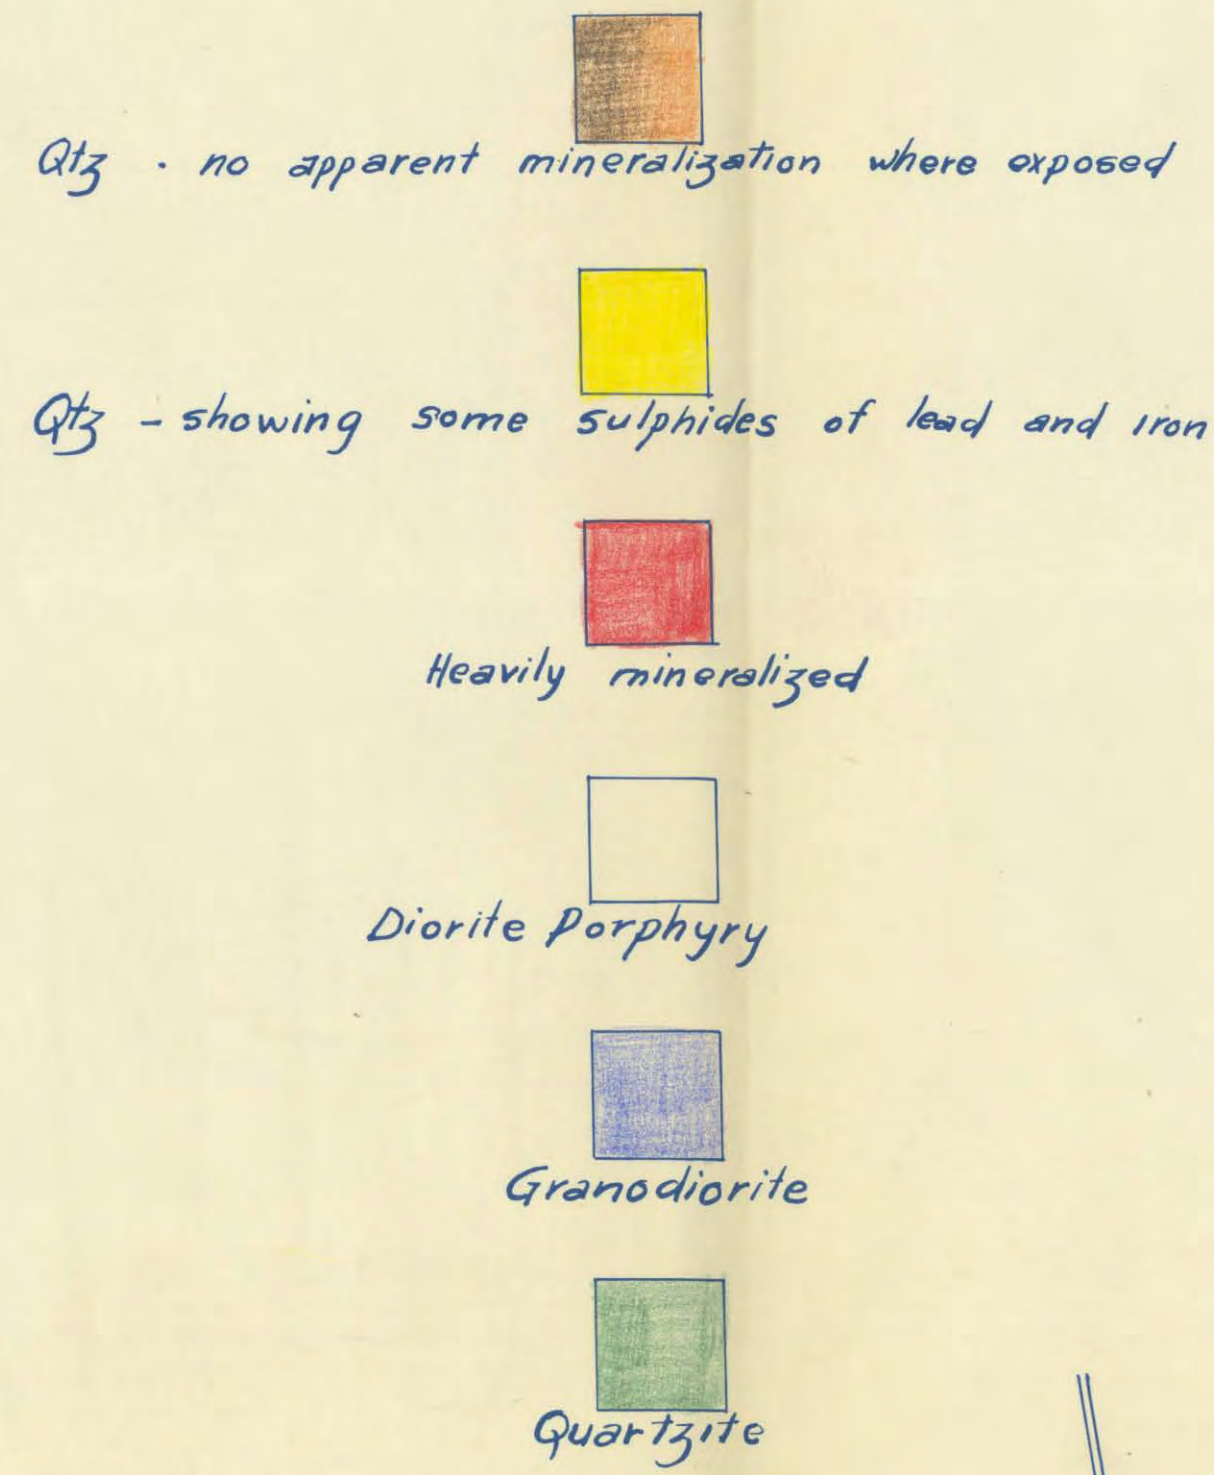 Qtz - no apparent mineralization where exposed
Qtz - showing some sulphides of lead and Iron
Heavily mineralized
Diorite Porphyry
Granodiorite
Quartzite